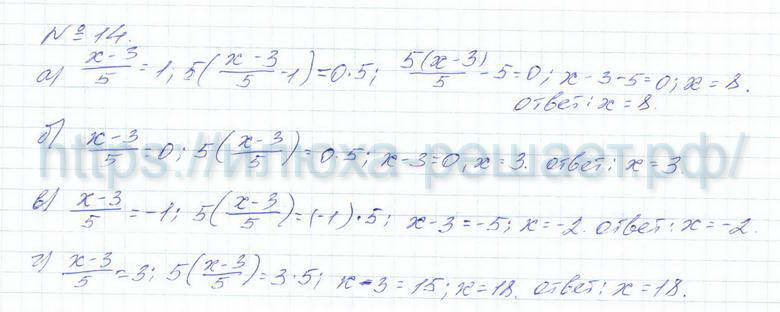 № 14.
а) (x-3)/5 = 1; 5((x-3)/5 - 1) = 0·5; 5(x-3)/5 - 5 = 0; x-3-5=0; x = 8.
ответ: x = 8.
б) (x-3)/5 = 0; 5((x-3)/5) = 0·5; x-3=0, x=3. ответ: x=3
https://илюха-решает.рф/
в) (x-3)/5 = -1; 5((x-3)/5) = (-1)·5; x-3=-5; x=-2. ответ: x=-2.
г) (x-3)/5 = 3; 5((x-3)/5) = 3·5; x-3=15; x=18. ответ: x=18.